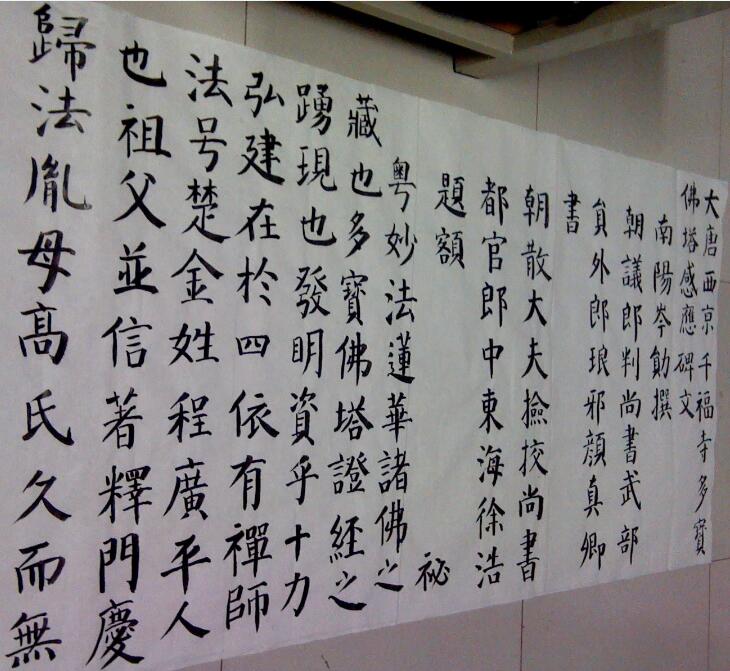 大唐西京千福寺多寶
佛塔感應碑文
南陽岑勛撰
朝議郎判尚書武部
員外郎琅邪顏真卿
書
朝散大夫撿挍尚書
都官郎中東海徐浩
題額 祕
粵妙法蓮華諸佛之
藏也多寶佛塔證經之
踴現也發明資乎十力
弘建在於四依有禪師
法号楚金姓程廣平人
也祖父並信著釋門慶
歸法胤母高氏久而無